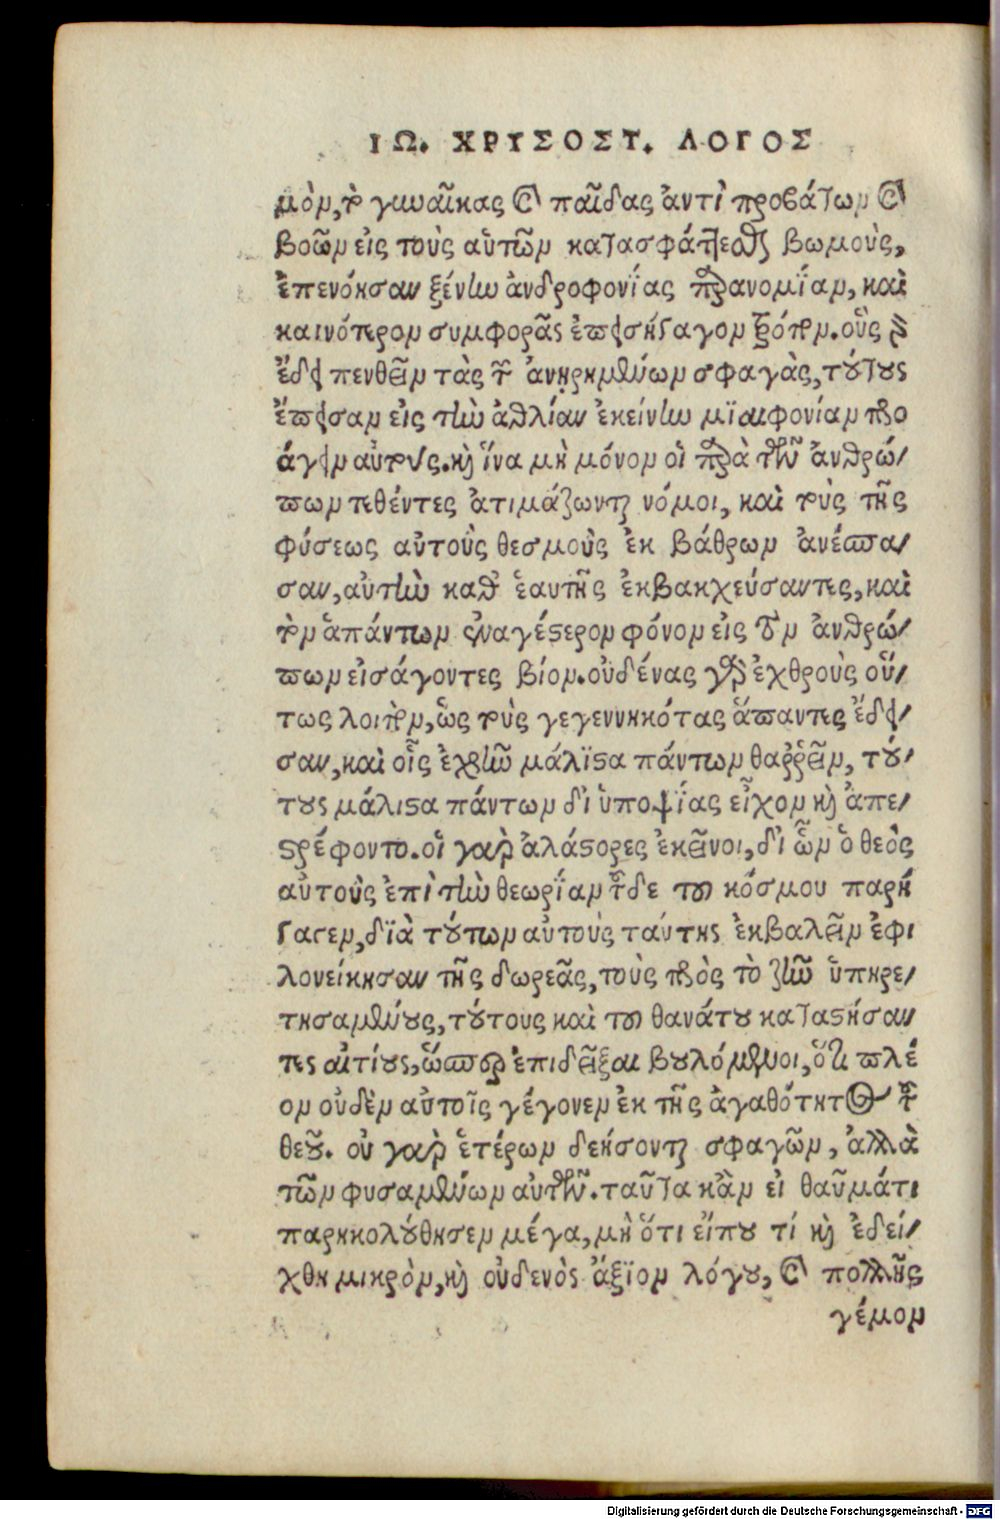 ΙΩ. ΧΡΥΣΟΣΤ. ΛΟΓΟΣ
μὸν, τὸ γυναῖκας καὶ παῖδας ἀντὶ προβάτων καὶ
βοῶν εἰς τοὺς αὑτῶν κατασφάττεσθαι βωμοὺς,
ἐπενόησαν ξένην ἀνδροφονΐας παρανομΐαν, καὶ
καινότερον συμφορᾶς ἐπεισήγαγον τρόπον. οὓς γὰρ
ἔδει πενθεῖν τὰς τῶν ἀνῃρημένων σφαγὰς, τούτους
ἔπεισαν εἰς τὴν ἀθλίαν ἐκείνην μϊαιφονίαν προ
άγειν αὐτοὺς. καὶ ἵνα μὴ μόνον οἱ παρὰ τῶν ἀνθρώ/
πων τεθέντες ἀτιμάζωνται νόμοι, καὶ τοὺς τῆς
φύσεως αὐτοὺς θεσμοὺς ἐκ βάθρων ἀνέσπα/
σαν, αὐτὴν καθ' ἑαυτῆς ἐκβακχεύσαντες, καὶ
τὸν ἁπάντων ἐναγέστερον φόνον εἰς τὸν ἀνθρώ/
πων εἰσάγοντες βίον. οὐδένας γὰρ ἐχθροὺς οὕ/
τως λοιπὸν, ὡς τοὺς γεγεννηκότας ἅπαντες ἔδει/
σαν, καὶ οἷς ἐχρῆν μάλϊστα πάντων θαῤῥεῖν, τού/
τους μάλιστα πάντων δι' ὑποψΐας εἶχον καὶ ἀπε/
στρέφοντο. οἱ γὰρ ἀλάστορες ἐκεῖνοι, δι' ὧν ὁ θεὸς
αὐτοὺς ἐπὶ τὴν θεωρΐαν τοῦδε τοῦ κόσμου παρή
γαγεν, δϊὰ τούτων αὐτοὺς ταύτης ἐκβαλεῖν ἐφι
λονείκησαν τῆς δωρεᾶς, τοὺς πρὸς τὸ ζῆν ὑπηρε/
τησαμένους, τούτους καὶ τοῦ θανάτου καταστήσαν/
τες αἰτίους, ὥσπερ ἐπιδεῖξαι βουλόμενοι, ὅτι πλέ
ον οὐδὲν αὐτοῖς γέγονεν ἐκ τῆς ἀγαθότητος τοῦ
θεοῦ. οὐ γὰρ ἑτέρων δεήσονται σφαγῶν, ἀλλὰ
τῶν φυσαμένων αὐτῶν. ταῦτα κἂν εἰ θαῦμάτι
παρηκολούθησεν μέγα, μὴ ὅτι εἴπου τί καὶ ἐδεί/
χθη μικρὸν, καὶ οὐδενὸς ἄξϊον λόγου, καὶ πολλῆς
γέμον
Digitalisierung gefördert durch die Deutsche Forschungsgemeinschaft - DFG